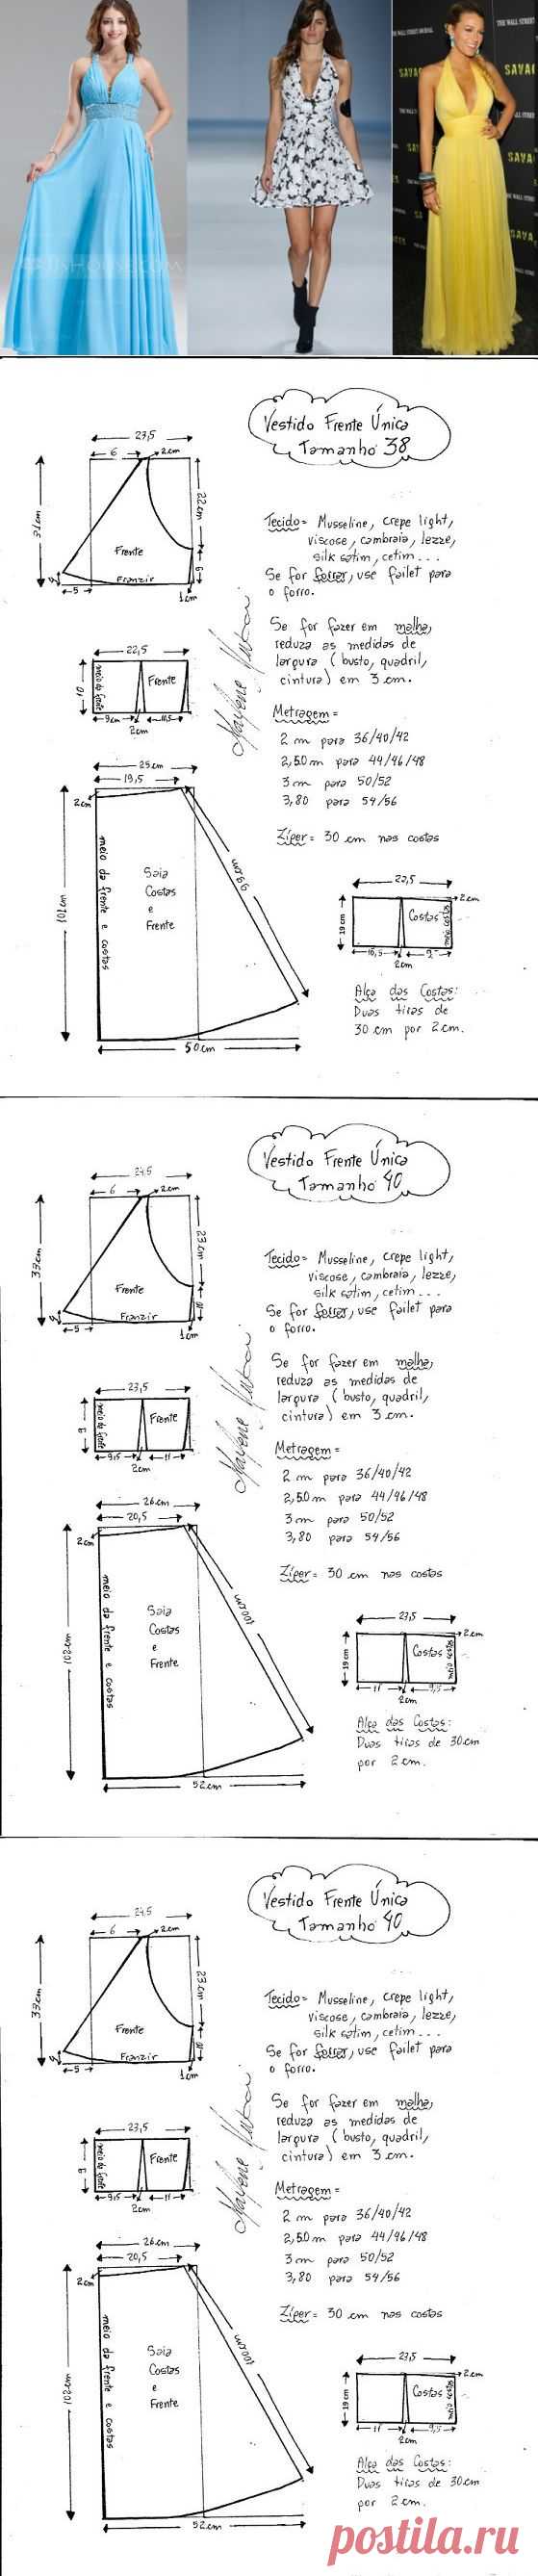 THE WALL STREET JOURNAL
THE WALL STREET
SAVA
SAVA
SAVA
Vestido Frente Única
Tamanho 38
23,5
6
2cm
31cm
22cm
Frente
Franzir
9
2
5
1cm
Tecido = Musseline, crepe light,
viscose, cambraia, lezze,
silk satim, cetim...
Se for forrar, use failet para
o forro.
Se for fazer em malha,
reduza as medidas de
largura (busto, quadril,
cintura) em 3 cm.
22,5
10
meio da frente
Frente
9cm
11,5
2cm
Metragem =
2 m para 36/40/42
2,50 m para 44/46/48
3 m para 50/52
3,80 para 54/56
Zíper = 30 cm nas costas
25cm
19,5
2cm
101cm
meio da frente e costas
Saia
Costas
e
Frente
99cm
50cm
22,5
2cm
19 cm
Costas
meio costas
10,5
9
2cm
Alça das Costas:
Duas tiras de
30 cm por 2cm.
Vestido Frente Única
Tamanho 40
24,5
6
2cm
33cm
23cm
Frente
Franzir
2
5
1cm
Tecido = Musseline, crepe light,
viscose, cambraia, lezze,
silk satim, cetim...
Se for forrar, use failet para
o forro.
Se for fazer em malha,
reduza as medidas de
largura (busto, quadril,
cintura) em 3 cm.
23,5
9
meio da frente
Frente
9,5
11
2cm
Metragem =
2 m para 36/40/42
2,50 m para 44/46/48
3 m para 50/52
3,80 para 54/56
Zíper = 30 cm nas costas
26cm
20,5
2cm
102cm
meio da frente e costas
Saia
Costas
e
Frente
100cm
52cm
23,5
2cm
19 cm
Costas
meio costas
11
9,5
2cm
Alça das Costas:
Duas tiras de 30cm
por 2cm.
Vestido Frente Única
Tamanho 40
24,5
6
2cm
33cm
23cm
Frente
Franzir
2
5
1cm
Tecido = Musseline, crepe light,
viscose, cambraia, lezze,
silk satim, cetim...
Se for forrar, use failet para
o forro.
Se for fazer em malha,
reduza as medidas de
largura (busto, quadril,
cintura) em 3 cm.
23,5
9
meio da frente
Frente
9,5
11
2cm
Metragem =
2 m para 36/40/42
2,50 m para 44/46/48
3 m para 50/52
3,80 para 54/56
Zíper = 30 cm nas costas
26cm
20,5
2cm
102cm
meio da frente e costas
Saia
Costas
e
Frente
100cm
52cm
23,5
2cm
19 cm
Costas
meio costas
11
9,5
2cm
Alça das Costas:
Duas tiras de 30cm
por 2cm.
postila.ru